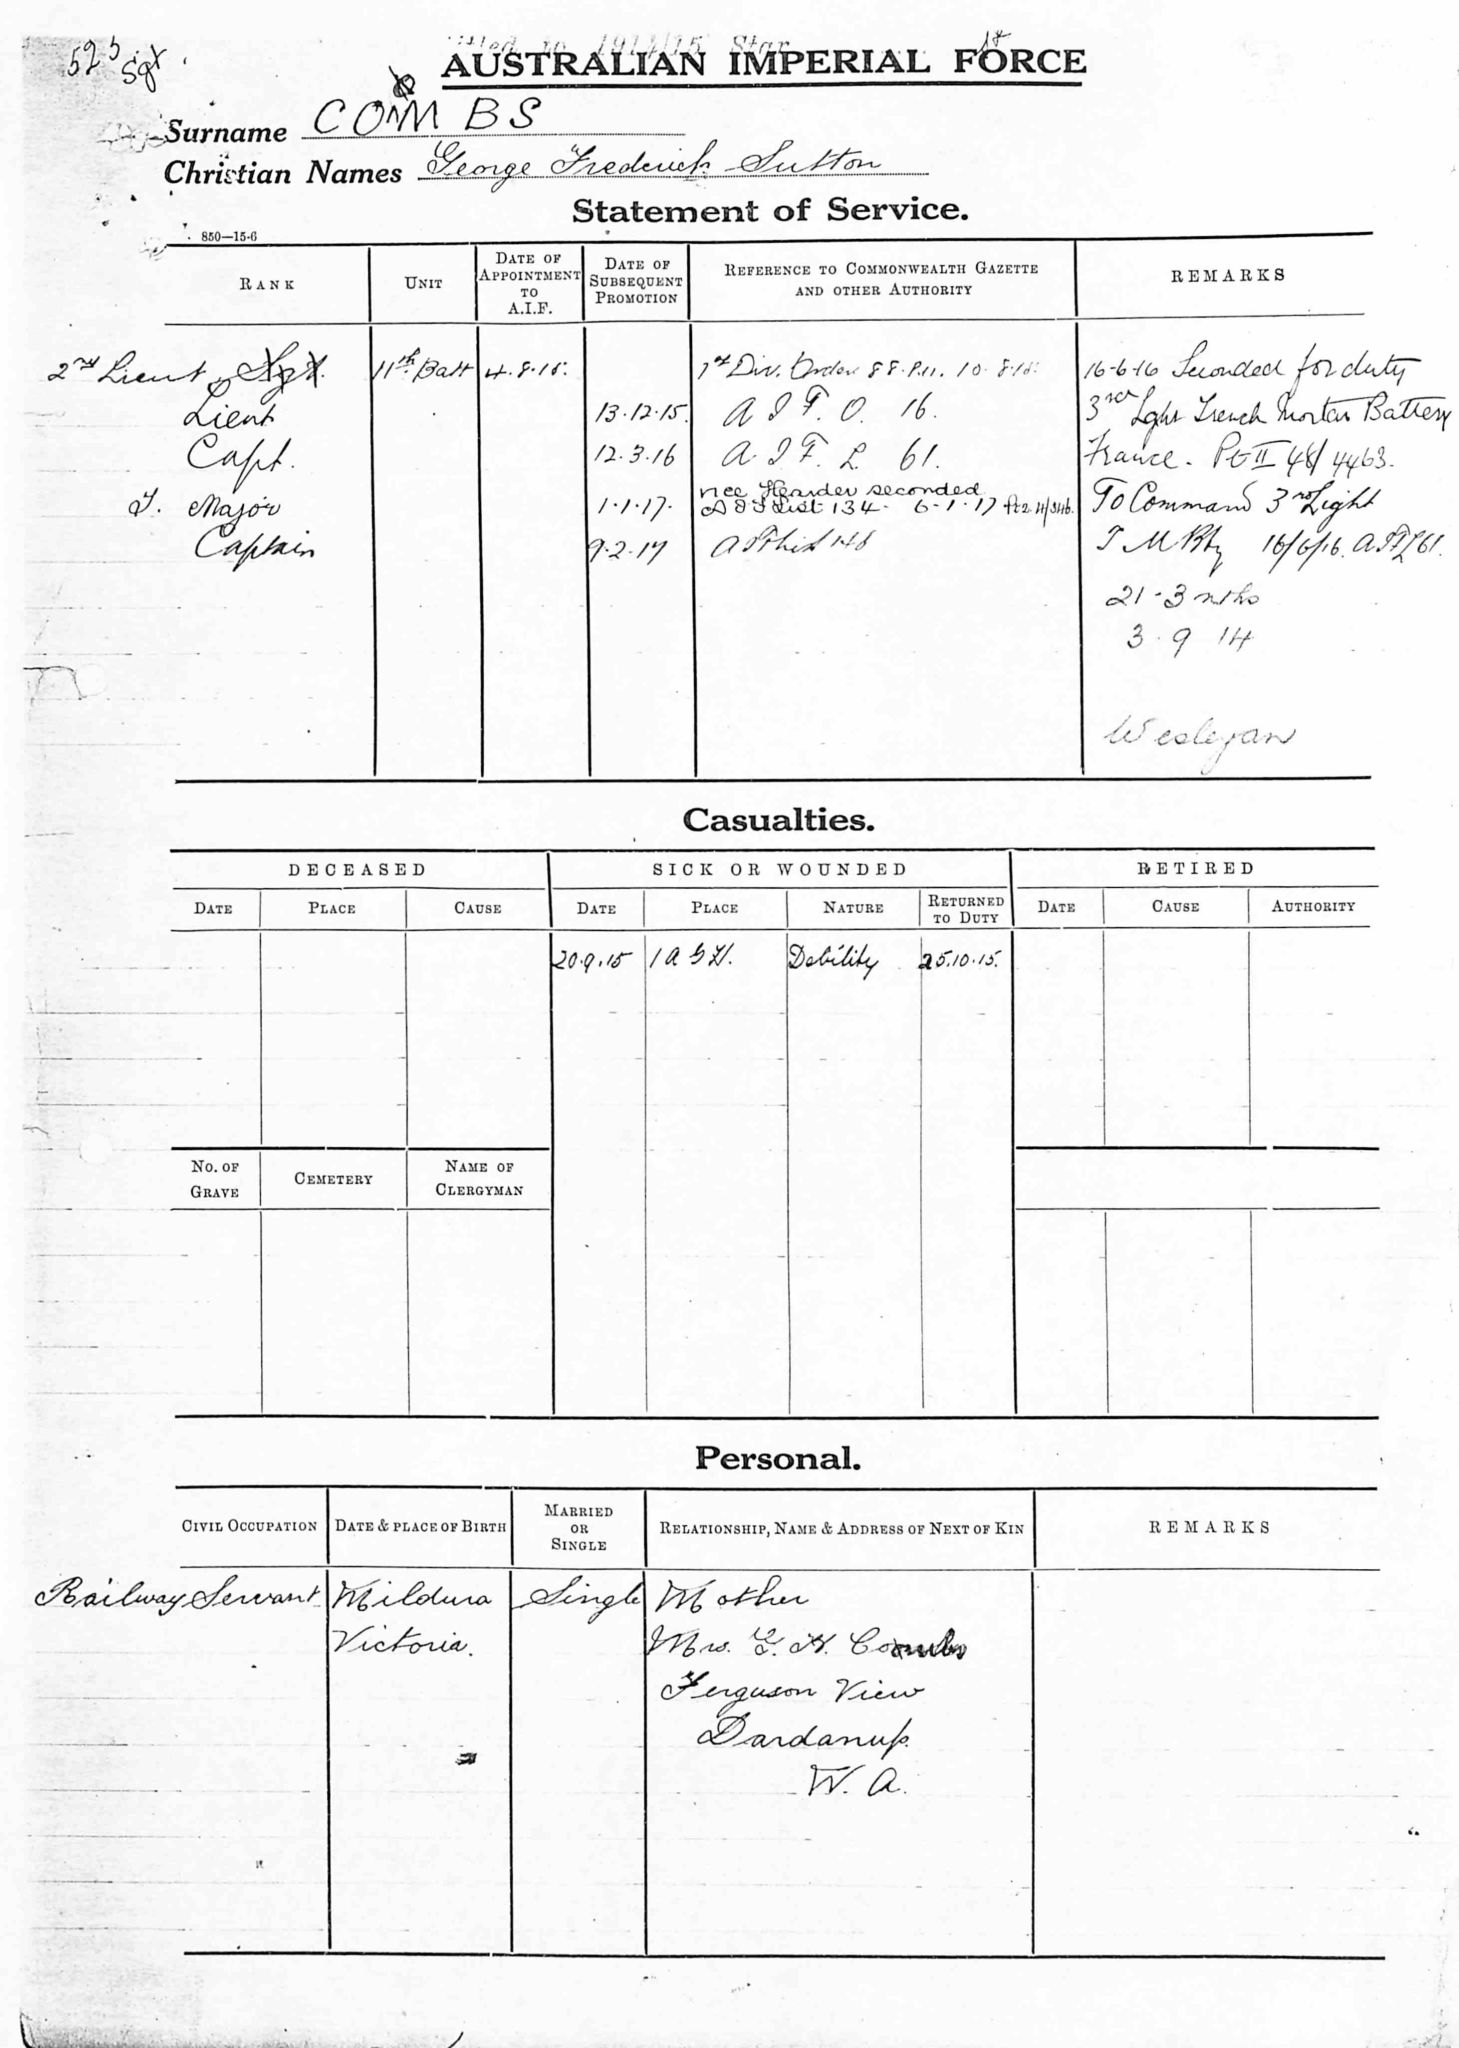 525
Sgt
1914/15 Star
AUSTRALIAN IMPERIAL FORCE
Surname COMBS
Christian Names George Frederick Sutton
Statement of Service.
850—15-6
RANK UNIT DATE OF APPOINTMENT TO A.I.F. DATE OF SUBSEQUENT PROMOTION REFERENCE TO COMMONWEALTH GAZETTE AND OTHER AUTHORITY REMARKS
2nd Lieut Sgt. 11th Batt 4.8.15. 1st Div. Order 88. 10.8.15. 16-6-16 Seconded for duty
Lieut 13.12.15. A I F. O. 16. 3rd Light Trench Mortar Battery
Capt. 12.3.16 A. I F. L 61. France. Pt II 48/4463.
T. Major 1.1.17. vice Hearder seconded A I F List 134. 6.1.17 To Command 3rd Light
Captain 9.2.17 A I F List 148 T M Bty 16/6/16. A I F L 61.
21-3 mths
3.9 14
Wesleyan
Casualties.
DECEASED SICK OR WOUNDED RETIRED
DATE PLACE CAUSE DATE PLACE NATURE RETURNED TO DUTY DATE CAUSE AUTHORITY
20.9.15 1 A G H. Debility 25.10.15.
NO. OF GRAVE CEMETERY NAME OF CLERGYMAN
Personal.
CIVIL OCCUPATION DATE & PLACE OF BIRTH MARRIED OR SINGLE RELATIONSHIP, NAME & ADDRESS OF NEXT OF KIN REMARKS
Railway Servant Mildura Single Mother
Victoria. Mrs. G. H. Combs
Ferguson View
Dardanup
W. A.